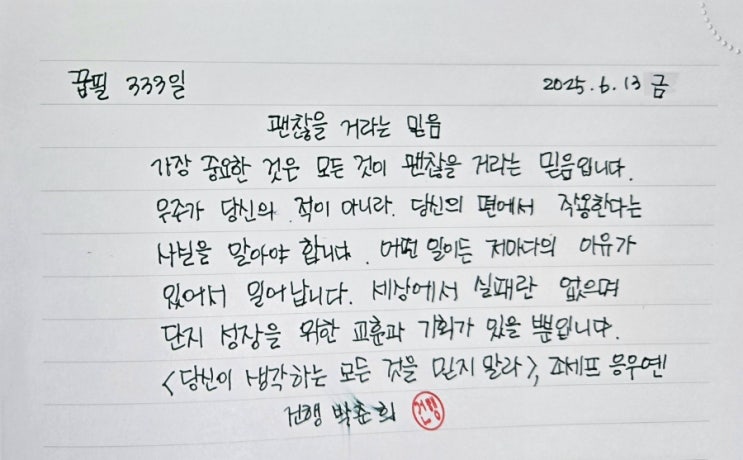 꿉필 333일 2025.6.13 금
괜찮을 거라는 믿음
가장 중요한 것은 모든 것이 괜찮을 거라는 믿음입니다.
우주가 당신의 적이 아니라. 당신의 편에서 작용한다는
사실을 알아야 합니다. 어떤 일이든 저마다의 이유가
있어서 일어납니다. 세상에서 실패란 없으며
단지 성장을 위한 교훈과 기회가 있을 뿐입니다.
<당신이 생각하는 모든 것을 믿지 말라>, 조세프 응우옌
건행 박춘희 건행